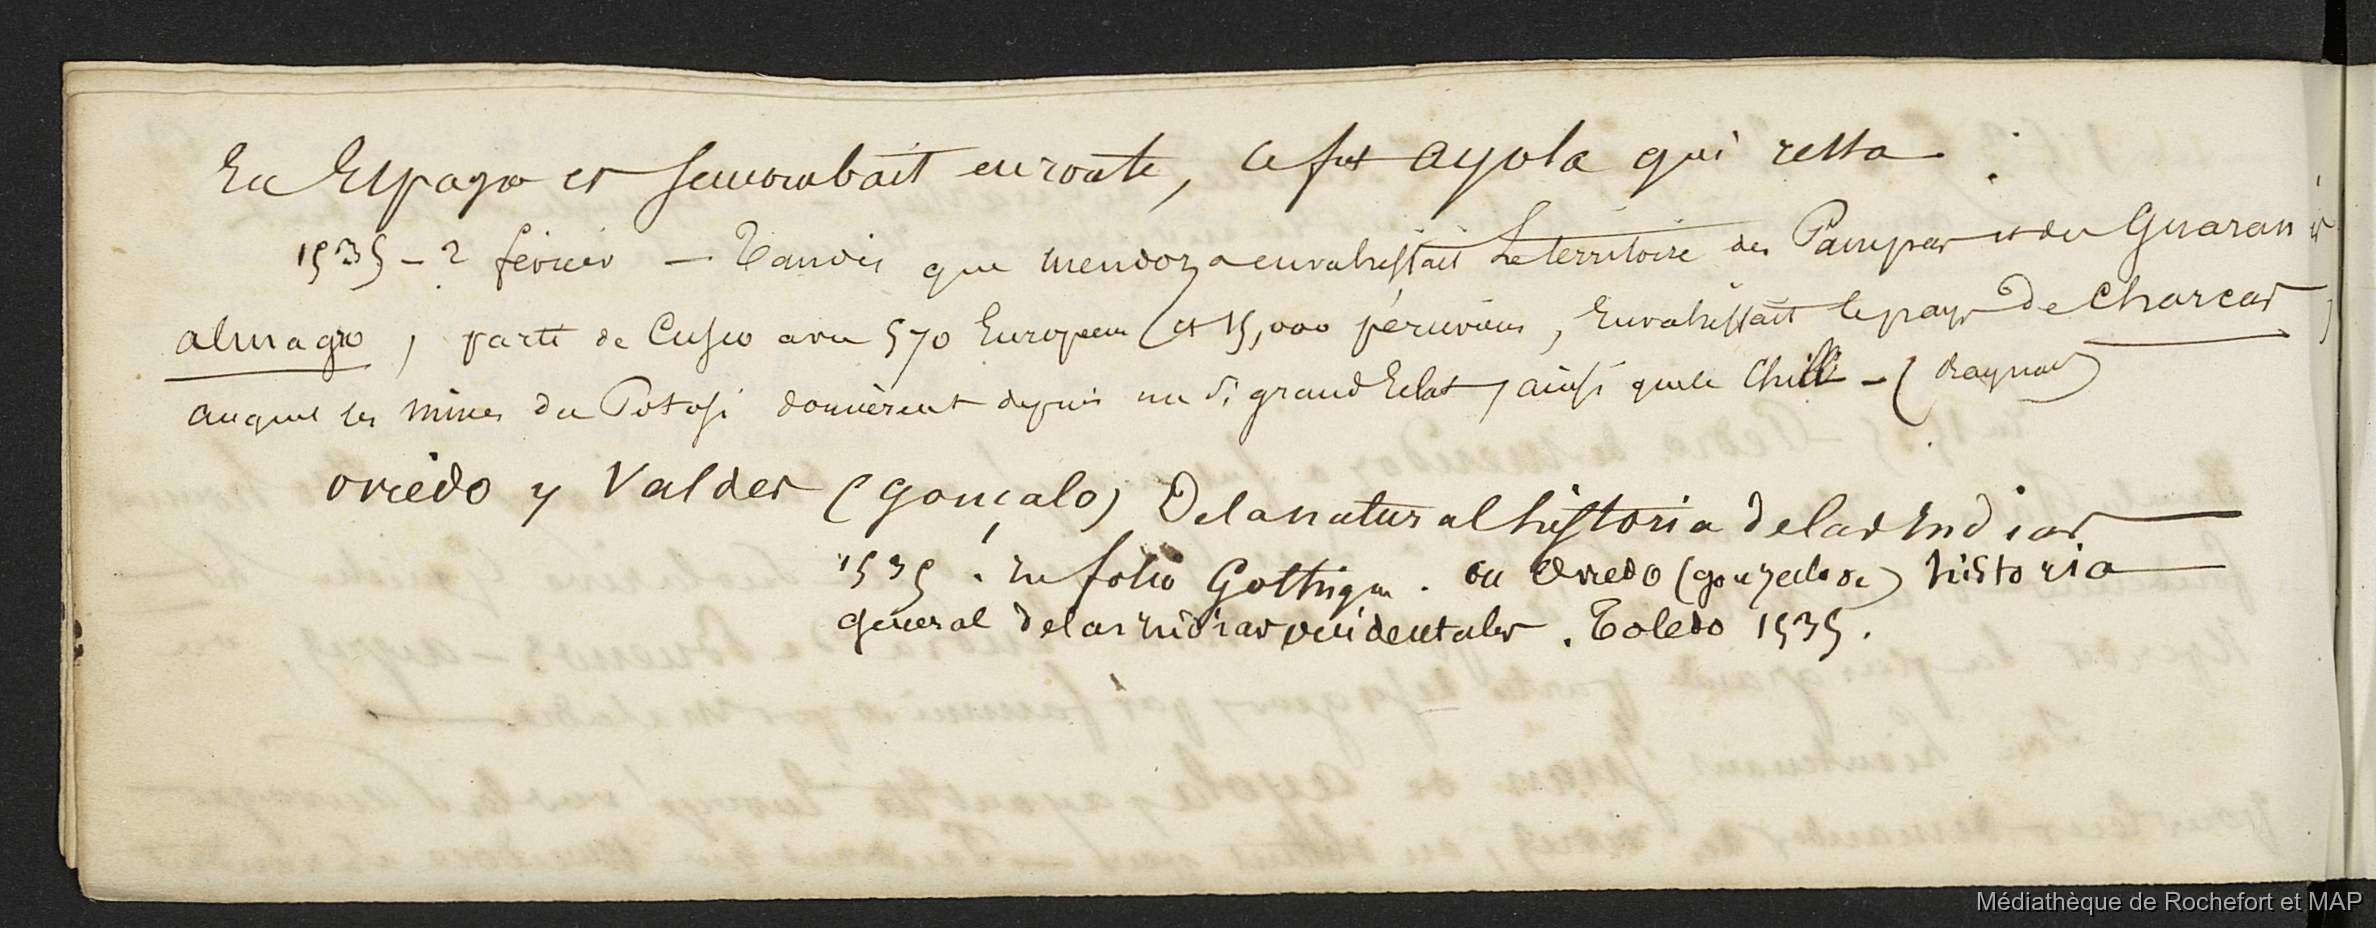 En Espagne et succombait en route, ce fut ayola qui resta.
1535 - 2 février - Tandis que mendoza envahissait le territoire des Pampas et des Guaranis
almagro, parti de Cusco avec 570 Européens et 15,000 péruviens, Envahissait le pays de Charcas,
auquel les mines du Potosi donnèrent depuis un si grand Eclat, ainsi que le Chili - (Raynal)
oviedo y Valdes (gonçalo) De la natural historia de las Indias
1535. in folio Gothique. ou Oviedo (gonzalo de) historia
general de las indias occidentales. Toledo 1535.
Médiathèque de Rochefort et MAP